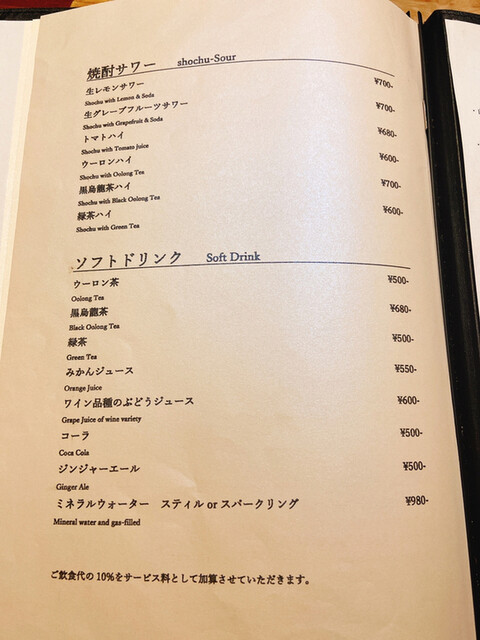 焼酎サワー shochu-Sour
生レモンサワー ¥700-
Shochu with Lemon & Soda
生グレープフルーツサワー ¥700-
Shochu with Grapefruit & Soda
トマトハイ ¥680-
Shochu with Tomato juice
ウーロンハイ ¥600-
Shochu with Oolong Tea
黒烏龍茶ハイ ¥700-
Shochu with Black Oolong Tea
緑茶ハイ ¥600-
Shochu with Green Tea
ソフトドリンク Soft Drink
ウーロン茶 ¥500-
Oolong Tea
黒烏龍茶 ¥680-
Black Oolong Tea
緑茶 ¥500-
Green Tea
みかんジュース ¥550-
Orange Juice
ワイン品種のぶどうジュース ¥600-
Grape Juice of wine variety
コーラ ¥500-
Coca Cola
ジンジャーエール ¥500-
Ginger Ale
ミネラルウォーター スティル or スパークリング ¥980-
Mineral water and gas-filled
ご飲食代の 10%をサービス料として加算させていただきます。